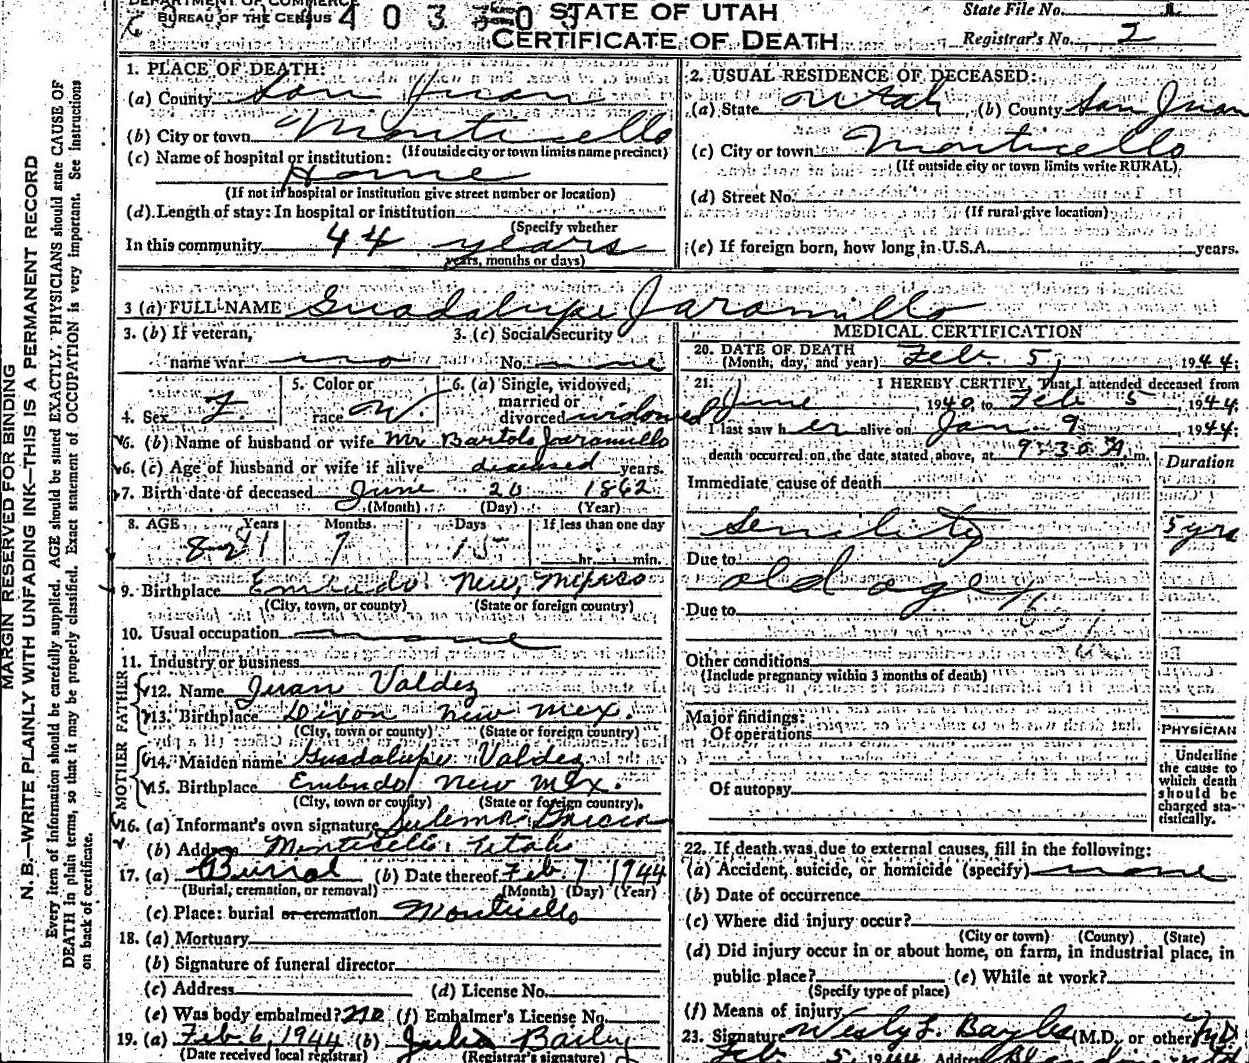 DEPARTMENT OF COMMERCE
BUREAU OF THE CENSUS
STATE OF UTAH
CERTIFICATE OF DEATH
State File No. 1
Registrar's No. 2
MARGIN RESERVED FOR BINDING
N. B.—WRITE PLAINLY WITH UNFADING INK—THIS IS A PERMANENT RECORD
Every item of information should be carefully supplied. AGE should be stated EXACTLY. PHYSICIANS should state CAUSE OF
DEATH in plain terms, so that it may be properly classified. Exact statement of OCCUPATION is very important. See instructions
on back of certificate.
1. PLACE OF DEATH:
(a) County San Juan
(b) City or town Monticello
(If outside city or town limits name precinct)
(c) Name of hospital or institution:
Home
(If not in hospital or institution give street number or location)
(d) Length of stay: In hospital or institution
(Specify whether
In this community 44 years
years, months or days)
2. USUAL RESIDENCE OF DECEASED:
(a) State Utah (b) County San Juan
(c) City or town Monticello
(If outside city or town limits write RURAL)
(d) Street No.
(If rural give location)
(e) If foreign born, how long in U.S.A. years.
3 (a) FULL NAME Guadalupe Jaramillo
3. (b) If veteran, 3. (c) Social Security
name war no No. none
4. Sex F. 5. Color or race W. 6. (a) Single, widowed, married or divorced widowed
6. (b) Name of husband or wife Mr Bartolo Jaramillo
6. (c) Age of husband or wife if alive deceased years.
7. Birth date of deceased June 20 1862
(Month) (Day) (Year)
8. AGE Years Months Days If less than one day
81 7 15 hr. min.
9. Birthplace Embudo New Mexico
(City, town, or county) (State or foreign country)
10. Usual occupation none
11. Industry or business
FATHER
12. Name Juan Valdez
13. Birthplace Dixon New Mex.
(City, town or county) (State or foreign country)
MOTHER
14. Maiden name Guadalupe Valdez
15. Birthplace Embudo New Mex.
(City, town or county) (State or foreign country).
16. (a) Informant's own signature
(b) Address Monticello, Utah
17. (a) Burial (b) Date thereof Feb. 7 1944
(Burial, cremation, or removal) (Month) (Day) (Year)
(c) Place: burial or cremation Monticello
18. (a) Mortuary
(b) Signature of funeral director
(c) Address (d) License No.
(e) Was body embalmed? no (f) Embalmer's License No.
19. (a) Feb 6, 1944 (b) Julia Bailey
(Date received local registrar) (Registrar's signature)
MEDICAL CERTIFICATION
20. DATE OF DEATH Feb. 5, 1944;
(Month, day, and year)
21. I HEREBY CERTIFY, That I attended deceased from
June, 1940, to Feb 5, 1944
I last saw her alive on Jan 9, 1944;
death occurred on the date stated above, at 9:30 A. m.
Duration
Immediate cause of death
Senility 5 yrs
Due to old age
Due to
Other conditions
(Include pregnancy within 3 months of death)
Major findings:
Of operations
Of autopsy
PHYSICIAN
Underline
the cause to
which death
should be
charged sta-
tistically.
22. If death was due to external causes, fill in the following:
(a) Accident, suicide, or homicide (specify) none
(b) Date of occurrence
(c) Where did injury occur?
(City or town) (County) (State)
(d) Did injury occur in or about home, on farm, in industrial place, in
public place? (e) While at work?
(Specify type of place)
(f) Means of injury
23. Signature Wesly L. Bayles (M.D. or other) M.D.
Feb 5, 1944 Address